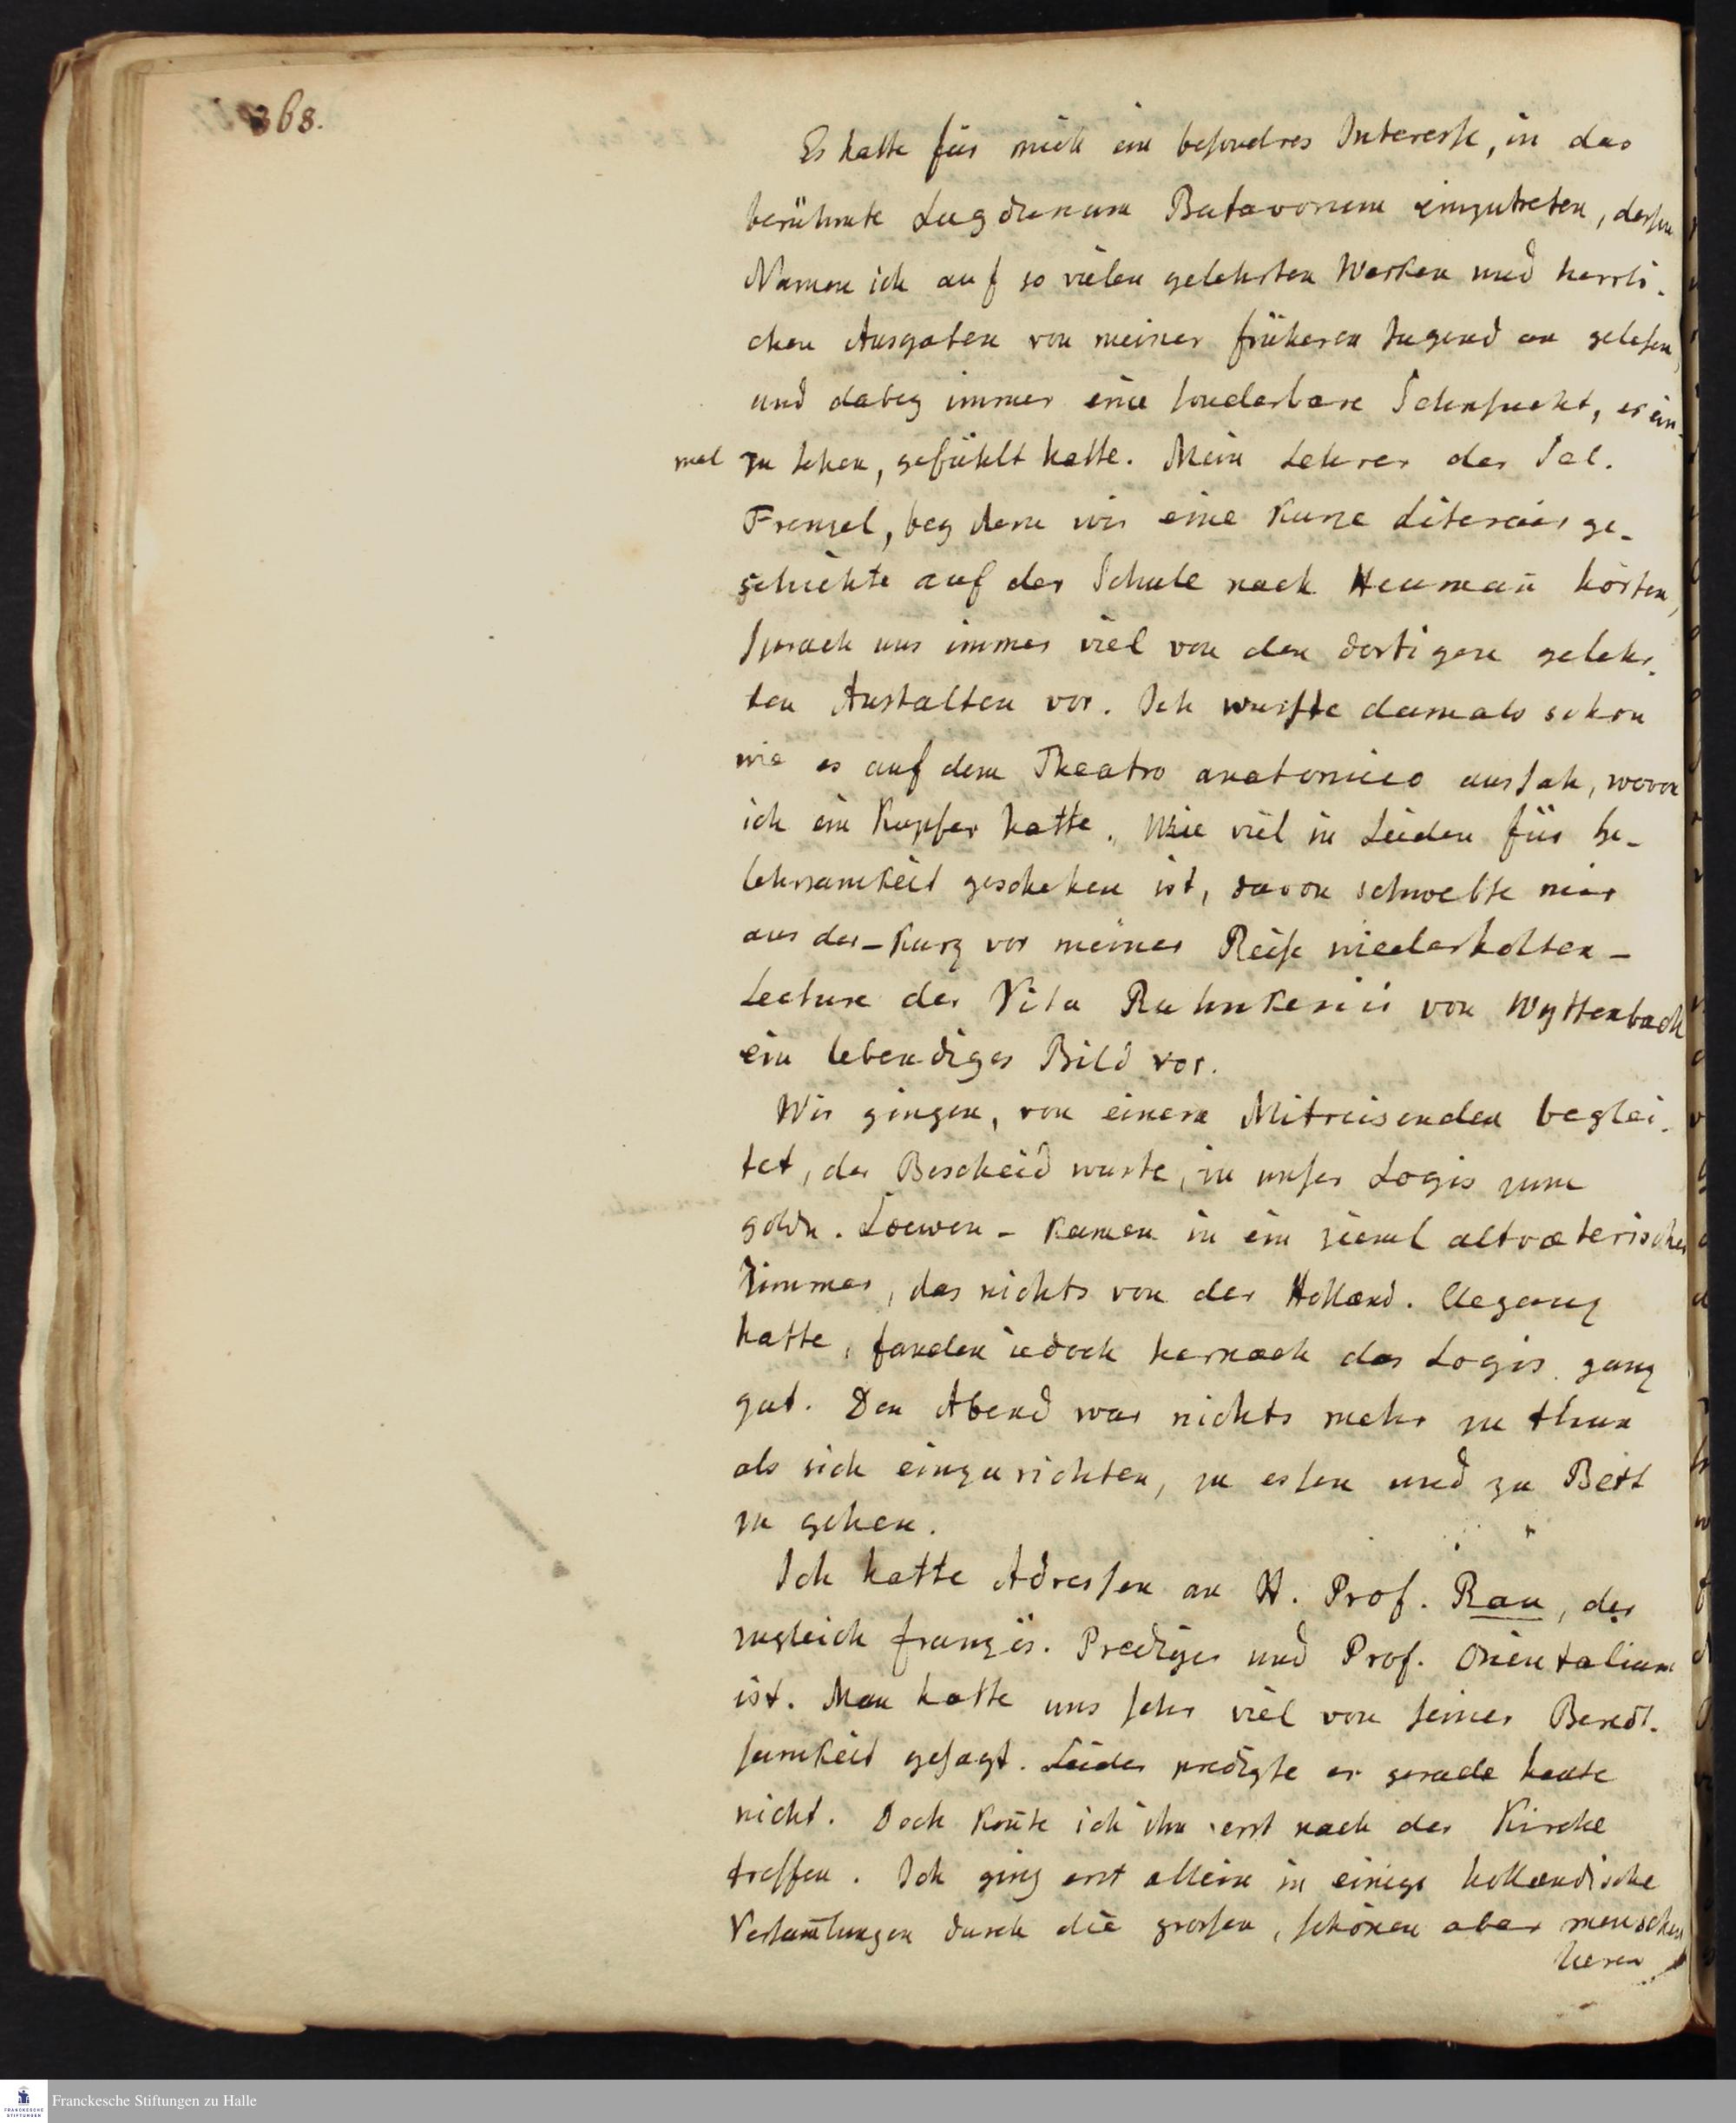 368.
Es hatte für mich ein besondres Interesse, in das
berühmte Lugdunum Batavorum einzutreten, dessen
Namen ich auf so vielen gelehrten Werken und herrli-
chen Ausgaben von meiner früheren Jugend an gelesen,
und dabey immer eine sonderbare Sehnsucht, es ein-
mal zu sehen, gefühlt hatte. Mein Lehrer der Sel.
Frenzel, bey dem wir eine kurze Literairge-
schichte auf der Schule nach Heumañ hörten,
sprach uns immer viel von den dortigen gelehr-
ten Anstalten vor. Ich wusste damals schon
wie es auf dem Theatro anatomico aussah, wovon
ich ein Kupfer hatte. Wie viel in Leiden für Ge-
lehrsamkeit geschehen ist, davon schwebte mir
aus der - kurz vor meiner Reise wiederholten -
Lecture der Vita Ruhnkenii von Wyttenbach
ein lebendiges Bild vor.
Wir gingen, von einem Mitreisenden beglei-
tet, der Bescheid wuste, in unser Logis zum
goldn. Loewen - kamen in ein zieml altvæterisches
Zimmer, das nichts von der Holländ. Eleganz
hatte, fanden iedoch hernach das Logis ganz
gut. Den Abend war nichts mehr zu thun
als sich einzurichten, zu essen und zu Bett
zu gehen.
Ich hatte Adressen an H. Prof. Rau, der
zugleich französ. Prediger und Prof. Orientalium
ist. Man hatte uns sehr viel von seiner Beredt-
samkeit gesagt. Leider predigte er gerade heute
nicht. Doch koñte ich ihn erst nach der Kirche
treffen. Ich ging erst allein in einige hollændische
Versam̃lungen durch die grossen, schönen aber menschen
leeren
Franckesche Stiftungen zu Halle